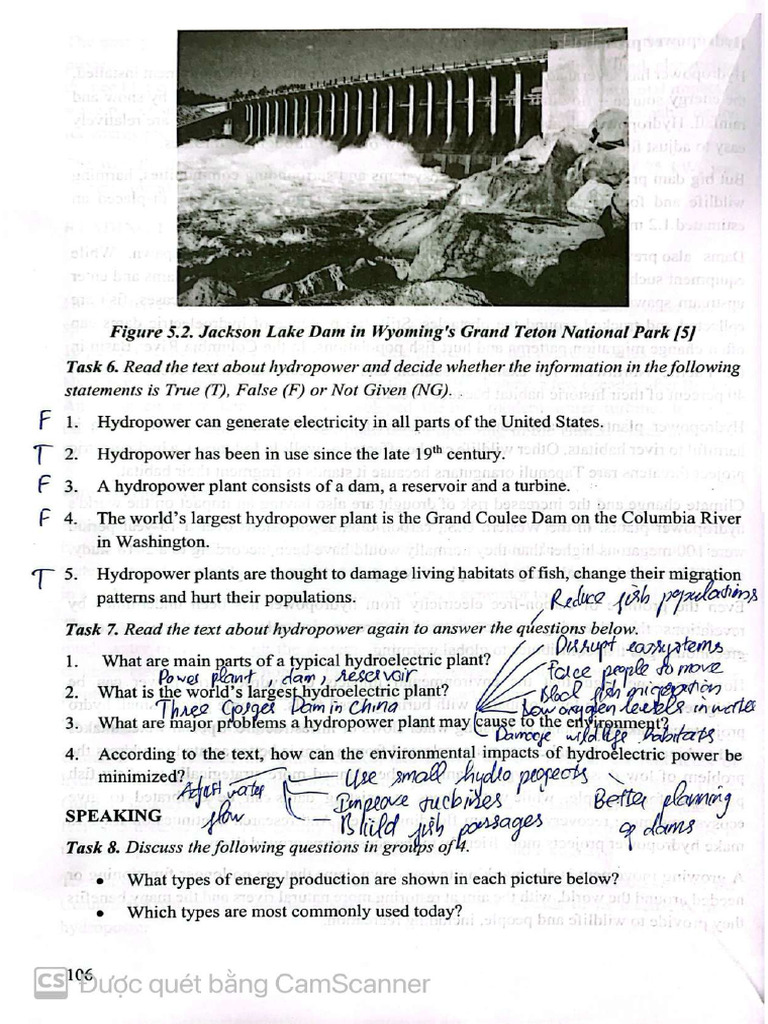 Figure 5.2. Jackson Lake Dam in Wyoming's Grand Teton National Park [5]
Task 6. Read the text about hydropower and decide whether the information in the following
statements is True (T), False (F) or Not Given (NG).
F 1. Hydropower can generate electricity in all parts of the United States.
T 2. Hydropower has been in use since the late 19th century.
F 3. A hydropower plant consists of a dam, a reservoir and a turbine.
F 4. The world's largest hydropower plant is the Grand Coulee Dam on the Columbia River
in Washington.
T 5. Hydropower plants are thought to damage living habitats of fish, change their migration
patterns and hurt their populations.
Reduce fish populations
Task 7. Read the text about hydropower again to answer the questions below.
Disrupt ecosystems
1. What are main parts of a typical hydroelectric plant?
Force people to move
Power plant, dam, reservoir
2. What is the world's largest hydroelectric plant?
Block fish migration
Three Gorges Dam in China
Low oxygen levels in water
3. What are major problems a hydropower plant may cause to the environment?
Damage wildlife habitats
4. According to the text, how can the environmental impacts of hydroelectric power be
minimized?
Use small hydro projects
Adjust water
flow
Improve turbines
Build fish passages
Better planning
of dams
SPEAKING
Task 8. Discuss the following questions in groups of 4.
• What types of energy production are shown in each picture below?
• Which types are most commonly used today?
106
CS Được quét bằng CamScanner